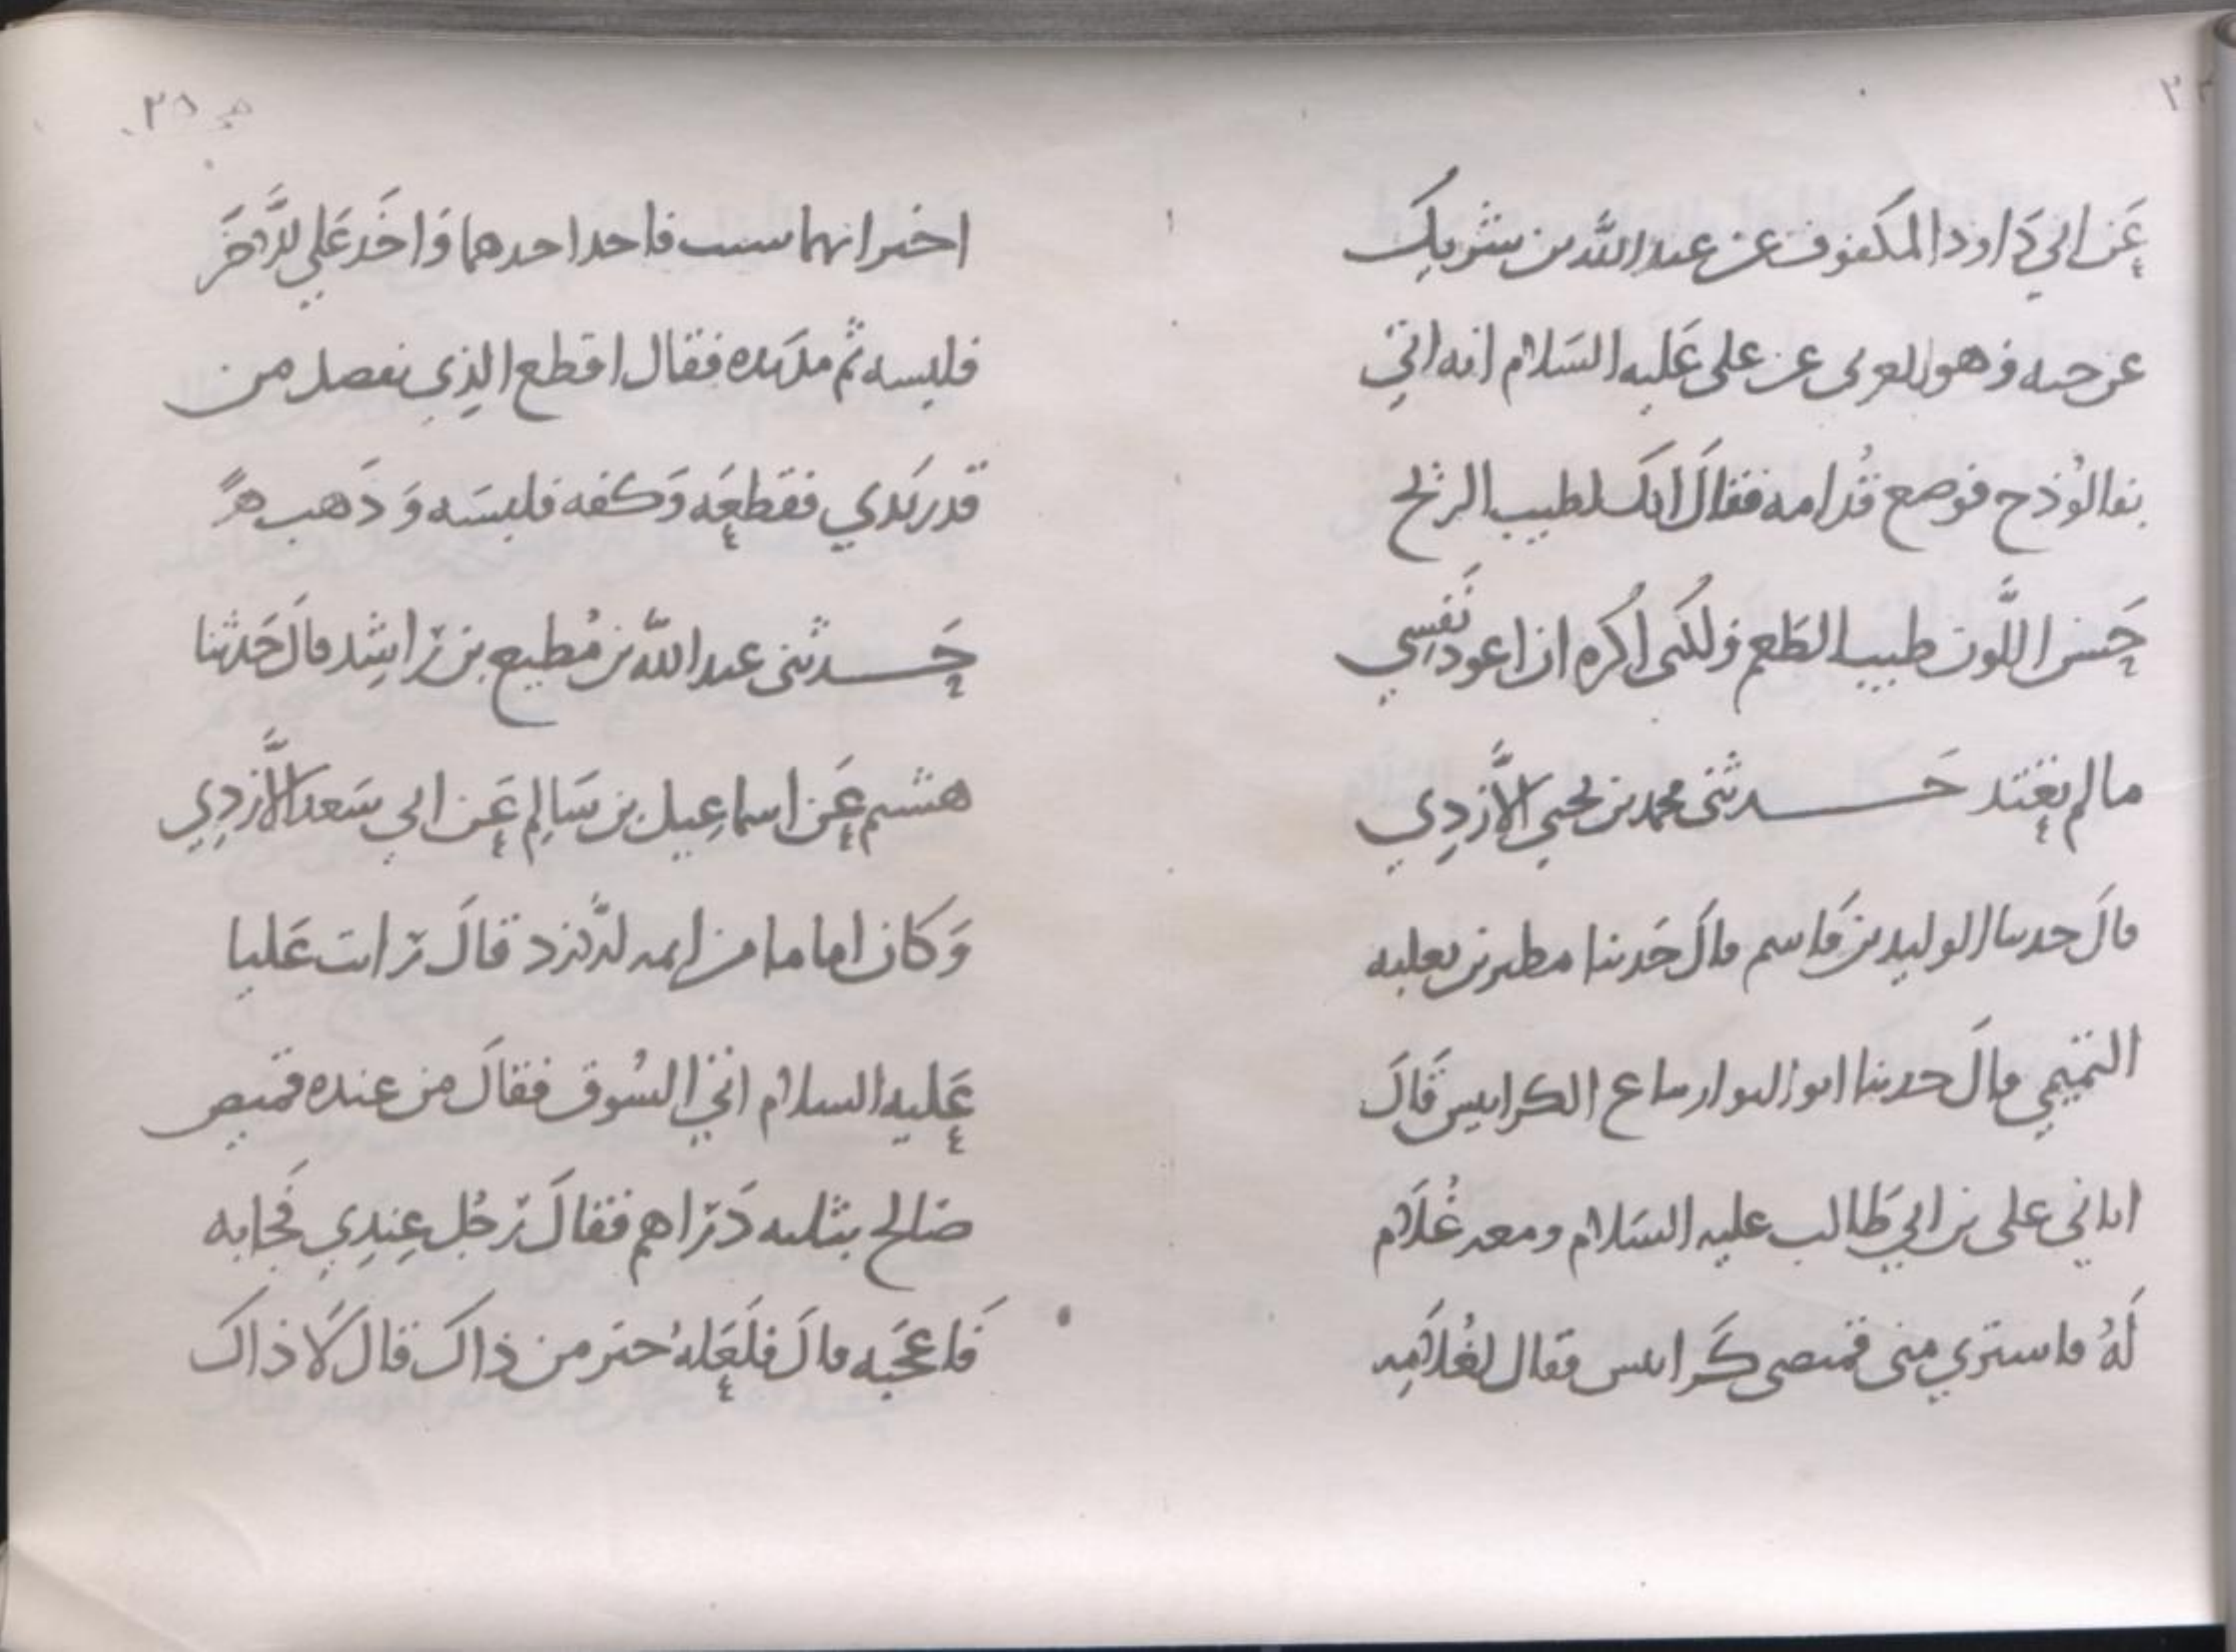 عَن ابي دَاود المكفوف عن عبد الله بن شريك
عن حبه وهو العرني عن علي عَليه السَلام انه اتي
بفالوُذج فوضع قُدامه فقالَ انك لطيب الريح
حَسن اللَّون طيب الطَعم ولكني اكُره ان اعود نَفِسي
ما لم تعتد حَدثني محمد بن يحيي الاَّزدِي
قالَ حدثنا الوليد بن قَاسم قالَ حَدثنا مطير بن ثعلبه
التميمي قالَ حدثنا ابو النوار بياع الكرابيس قَالَ
اتاني علي بن ابي طَالب عليه السَلام ومعه غُلَام
لَهُ فاشتري مني قميصي كَرابيس فقال لغُلَامِه
٢٥
اختر ايهما شيت فاخذ احدهما وَاخَذ عَلي الاَّخَر
فلبسه ثم مد يَده فقال اقطع الذِي يفضل من
قدر يَدي فقطعَه وَكفه فلبسَه وَ ذَهب
حَدثني عبد اللّه بن مُطيع بن رَاشِد قالَ حَدثنا
هشيم عَن اسماعِيل بن سَالِم عَن ابي سَعد الاَّزدِي
وَكان اماما من ايمه الاَّزد قالَ رايت عَليا
عَليه السلام اتي السُوق فقالَ من عنده قميص
صَالح بثلثه دَرَاهم فقالَ رَجُل عِندِي فَجا به
فَاعجَبه قالَ فلَعَلهُ خير من ذاك قالَ لَا ذاك